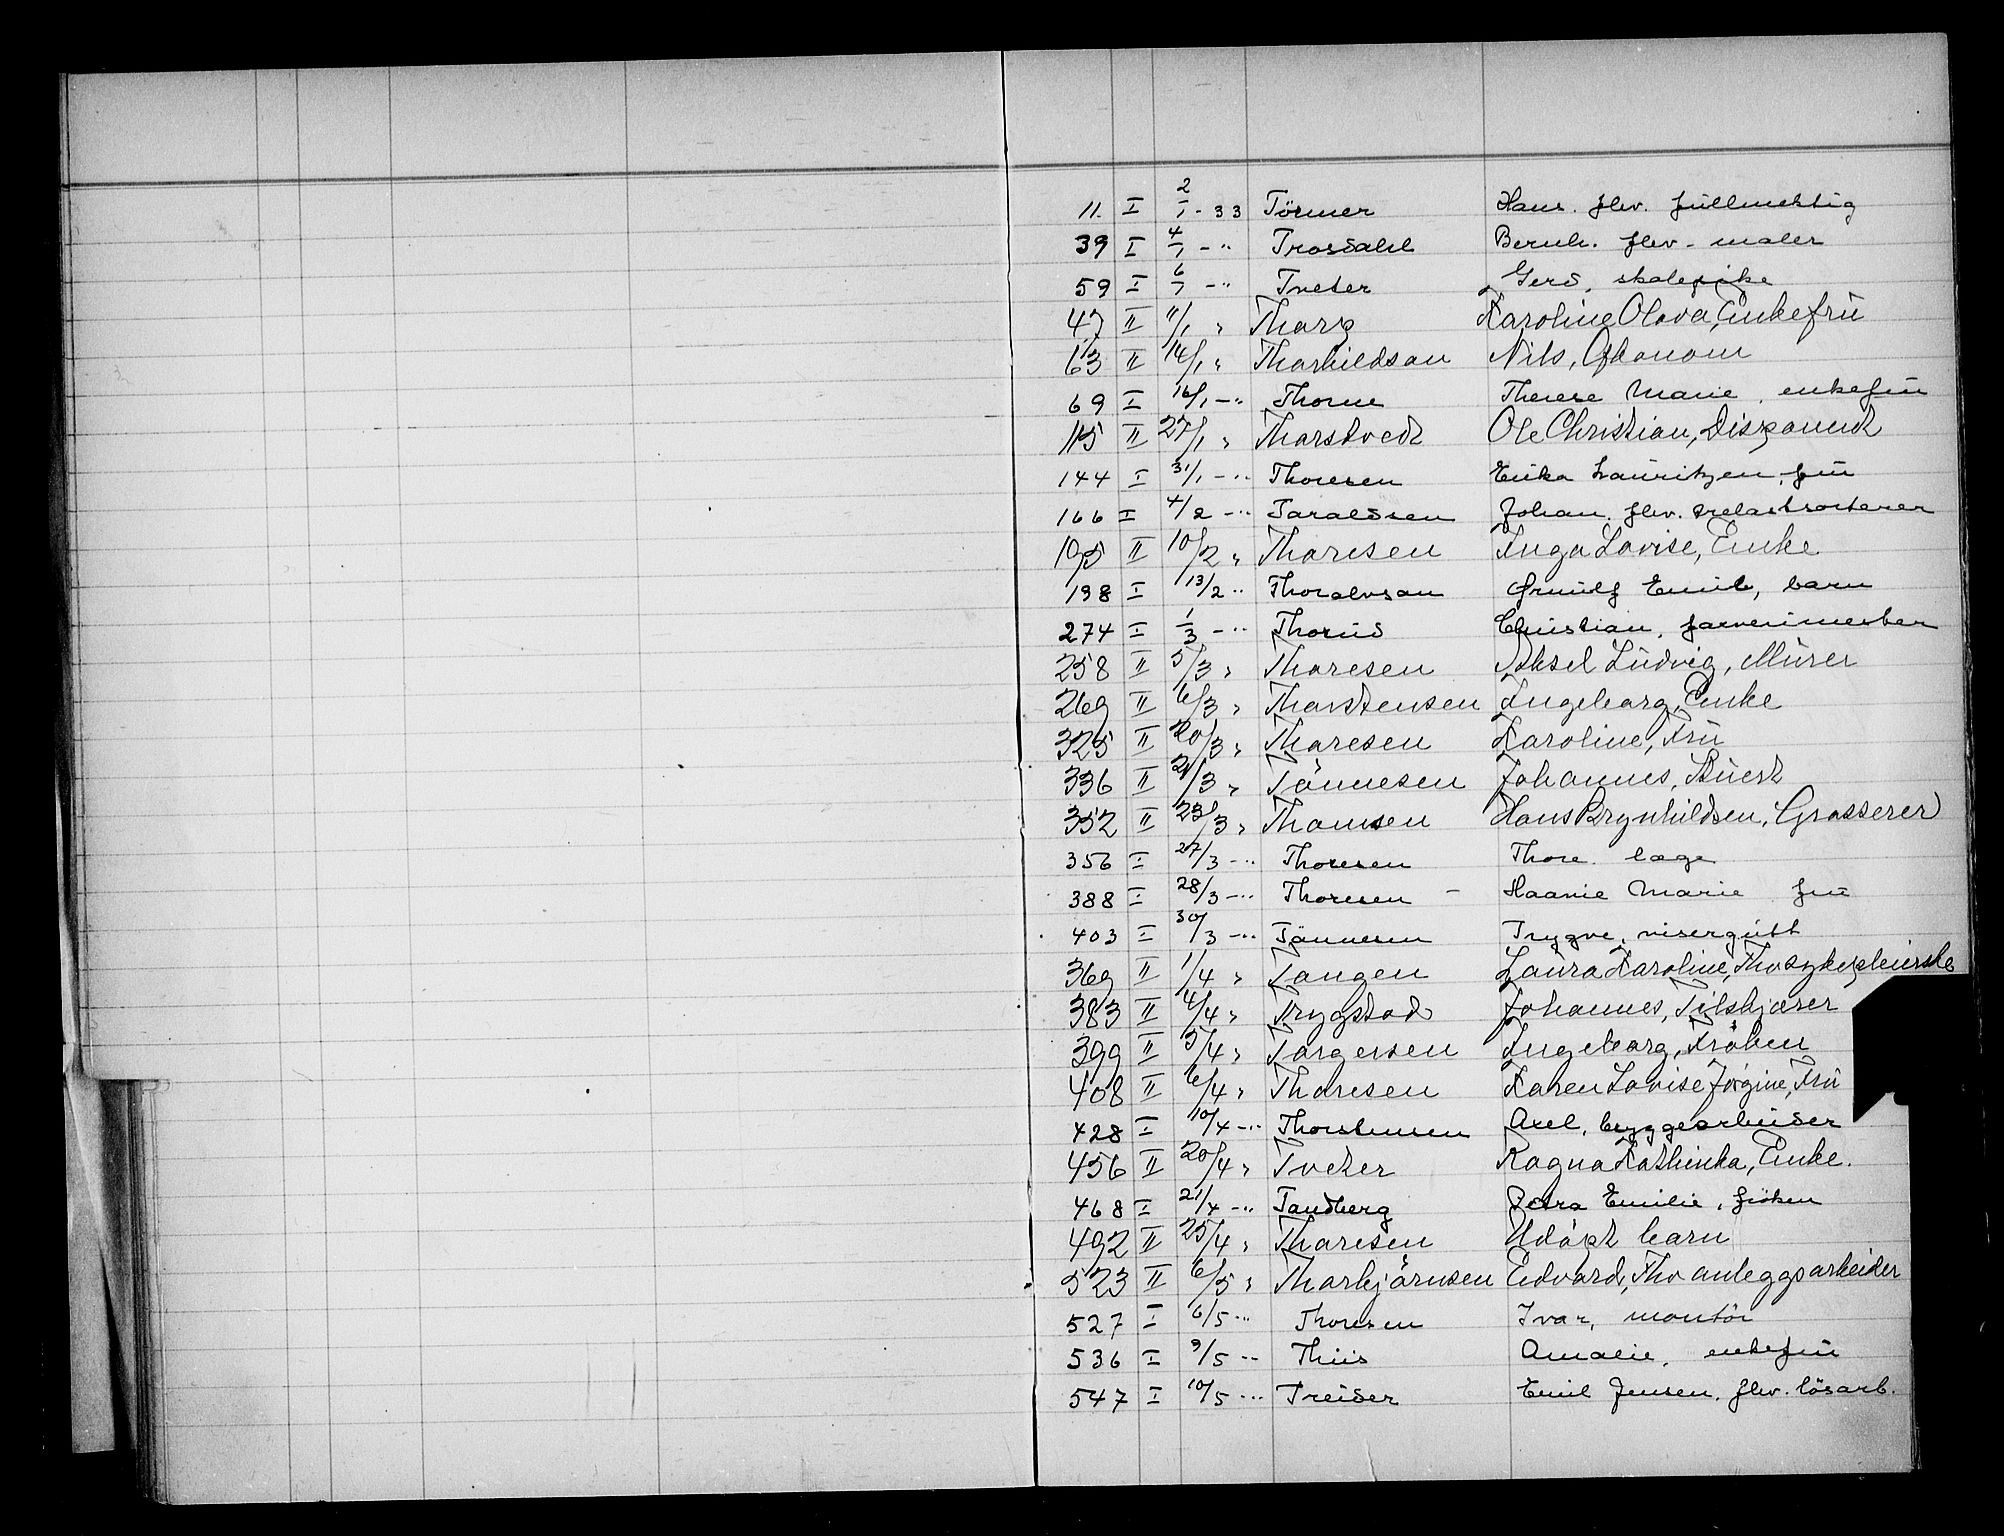 11. I 2/1 - 33 Törmer Hans. fhv. fullmektig
39 I 4/1 - " Trosdahl Bernh. fhv. maler
59 I 6/1 - " Tveter Gerd, skolepike
47 II 11/1 " Thorp Karoline Olava, Enkefrü
63 II 14/1 " Thorkildsen Nils, Økonom
69 I 16/1 - " Thorne Therese Marie, enkefrü
115 II 27/1 " Thorstvedt Ole Christian, Disponent
144 I 31/1 - " Thoresen Erika Lauritzen, frü
166 I 4/2 - " Taraldsen Johan. fhv. trelastsorterer
195 II 10/2 " Thoresen Inga Lovise, Enke
198 I 13/2 " Thoralvsen Ørnulf Emil, barn
274 I 1/3 - " Thorüd Christian, farverimester
258 II 5/3 " Thoresen Aksel Lüdvig, Mürer
269 II 6/3 " Thorstensen Ingeborg, Enke
325 II 20/3 " Thoresen Karoline, Frü
336 II 21/3 " Tönnesen Johannes, Stüert
352 II 23/3 " Thomsen Hans Brynhildsen, Grosserer
356 I 27/3 - " Thoresen Thore. læge
388 I 28/3 - " Thoresen - Haanie Marie frü
403 I 30/3 - " Tönnesen Trygve, visergütt
369 II 1/4 " Tangen Laura Karoline, Fhv sykepleierske
383 II 4/4 " Trygstad Johannes, Tilskjærer
399 II 5/4 " Torgersen Ingeborg, Fröken
408 II 6/4 " Thoresen Karen Lovise Jörgine, Frü
428 I 10/4 - " Thorstensen Axel, bryggearbeider
456 II 20/4 " Tveter Ragna Kathinka, Enke.
468 I 21/4 - " Tandberg Petra Emilie, fröken
492 II 25/4 " Thoresen Udöpt barn
523 II 6/5 " Thorbjörnsen Edvard, Fhv anleggsarbeider
527 I 6/5 - " Thoresen Ivar, montör
536 I 9/5 - " Thiis Amalie, enkefrü
547 I 10/5 - " Treider Emil Jensen, fhv. lösarb.